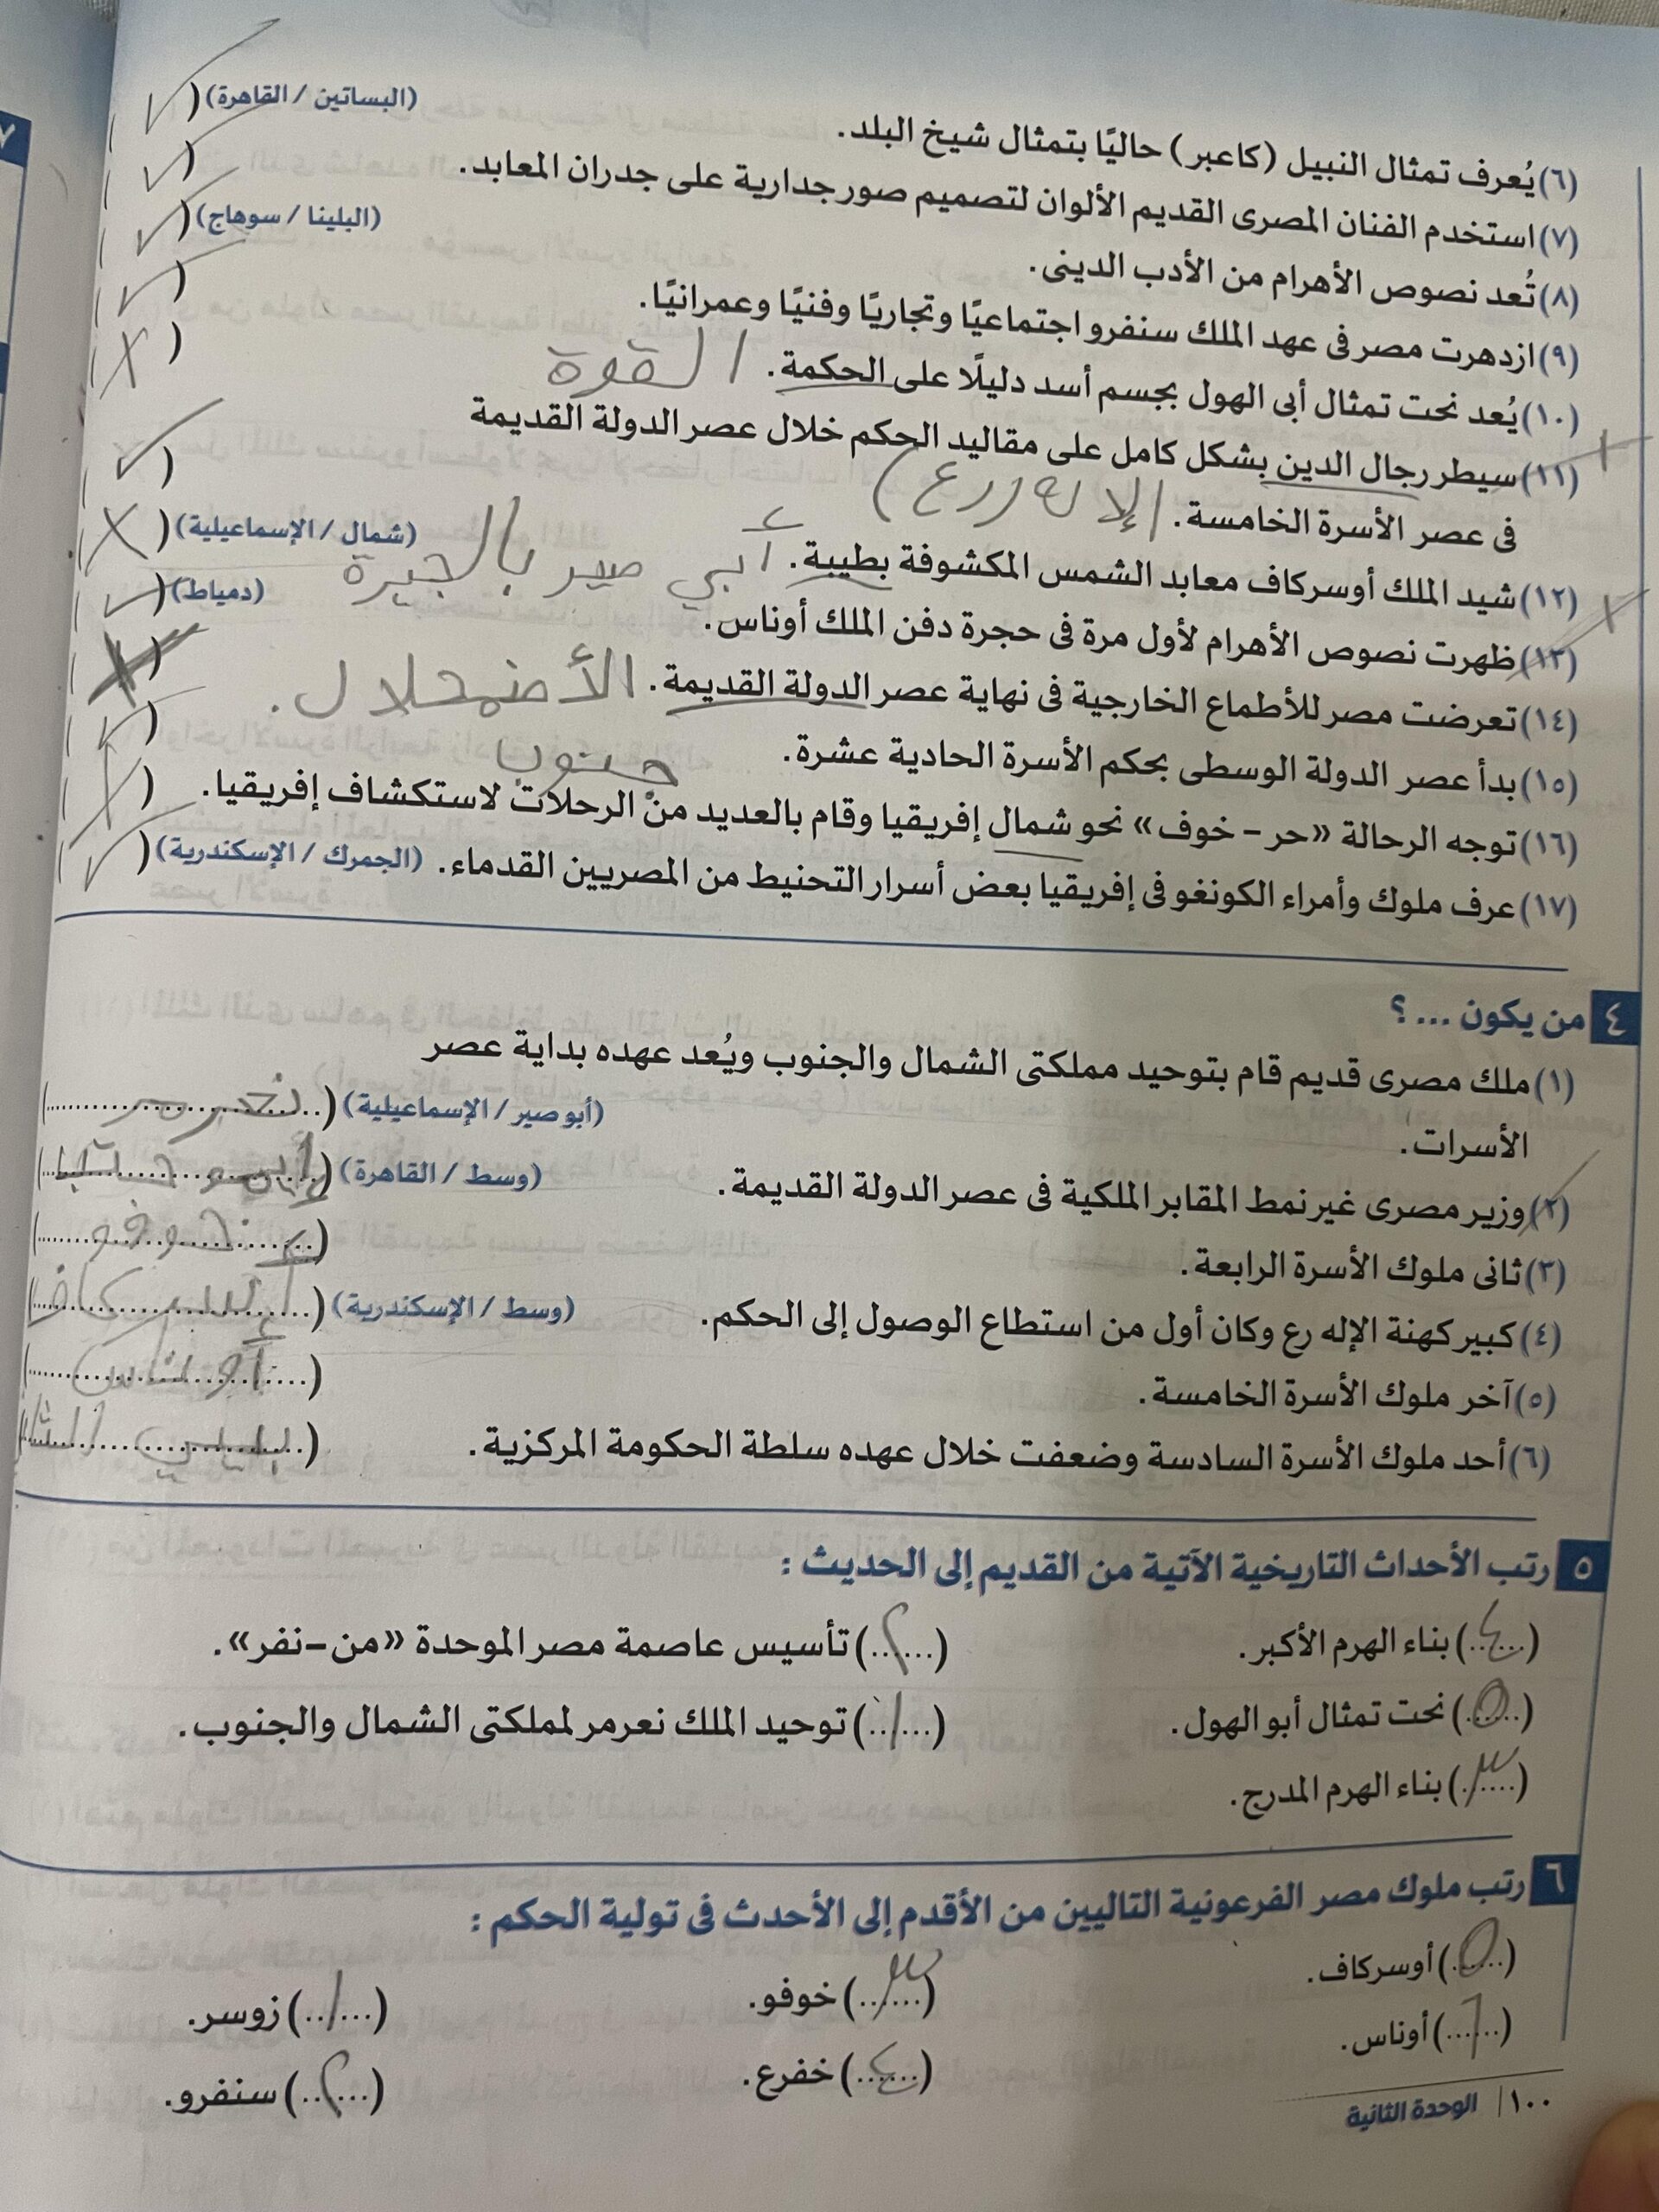 (٦) يُعرف تمثال النبيل (كاعبر) حاليًا بتمثال شيخ البلد. (البساتين / القاهرة) ( ✓
(٧) استخدم الفنان المصرى القديم الألوان لتصميم صور جدارية على جدران المعابد. ( ✓
(٨) تُعد نصوص الأهرام من الأدب الدينى. (البلينا / سوهاج) ( ✓
(٩) ازدهرت مصر فى عهد الملك سنفرو اجتماعيًا وتجاريًا وفنيًا وعمرانيًا. ( ✓
(١٠) يُعد نحت تمثال أبى الهول بجسم أسد دليلًا على الحكمة. القوة ( X
(١١) سيطر رجال الدين بشكل كامل على مقاليد الحكم خلال عصر الدولة القديمة
فى عصر الأسرة الخامسة. الإله (رع) ( ✓
(١٢) شيد الملك أوسركاف معابد الشمس المكشوفة بطيبة. أبي صير بالجيزة (شمال / الإسماعيلية) ( X
(١٣) ظهرت نصوص الأهرام لأول مرة فى حجرة دفن الملك أوناس. (دمياط) ( ✓
(١٤) تعرضت مصر للأطماع الخارجية فى نهاية عصر الدولة القديمة. الأضمحلال. ( X
(١٥) بدأ عصر الدولة الوسطى بحكم الأسرة الحادية عشرة. ( ✓
جنوب
(١٦) توجه الرحالة «حر - خوف» نحو شمال إفريقيا وقام بالعديد من الرحلات لاستكشاف إفريقيا. ( X
(١٧) عرف ملوك وأمراء الكونغو فى إفريقيا بعض أسرار التحنيط من المصريين القدماء. (الجمرك / الإسكندرية) ( ✓
٤ من يكون ... ؟
(١) ملك مصرى قديم قام بتوحيد مملكتى الشمال والجنوب ويُعد عهده بداية عصر
الأسرات. (أبو صير / الإسماعيلية) (
(٢) وزير مصرى غير نمط المقابر الملكية فى عصر الدولة القديمة. (وسط / القاهرة) (
(٣) ثانى ملوك الأسرة الرابعة. (خوفو)
(٤) كبير كهنة الإله رع وكان أول من استطاع الوصول إلى الحكم. (وسط / الإسكندرية) (
(٥) آخر ملوك الأسرة الخامسة. (أوناس)
(٦) أحد ملوك الأسرة السادسة وضعفت خلال عهده سلطة الحكومة المركزية. (
٥ رتب الأحداث التاريخية الآتية من القديم إلى الحديث :
(٤) بناء الهرم الأكبر. (٢) تأسيس عاصمة مصر الموحدة «من-نفر».
(٥) نحت تمثال أبو الهول. (١) توحيد الملك نعرمر لمملكتى الشمال والجنوب.
(٣) بناء الهرم المدرج.
٦ رتب ملوك مصر الفرعونية التاليين من الأقدم إلى الأحدث فى تولية الحكم :
(٥) أوسركاف. (٣) خوفو. (١) زوسر.
(٦) أوناس. (٤) خفرع. (٢) سنفرو.
١٠٠ | الوحدة الثانية